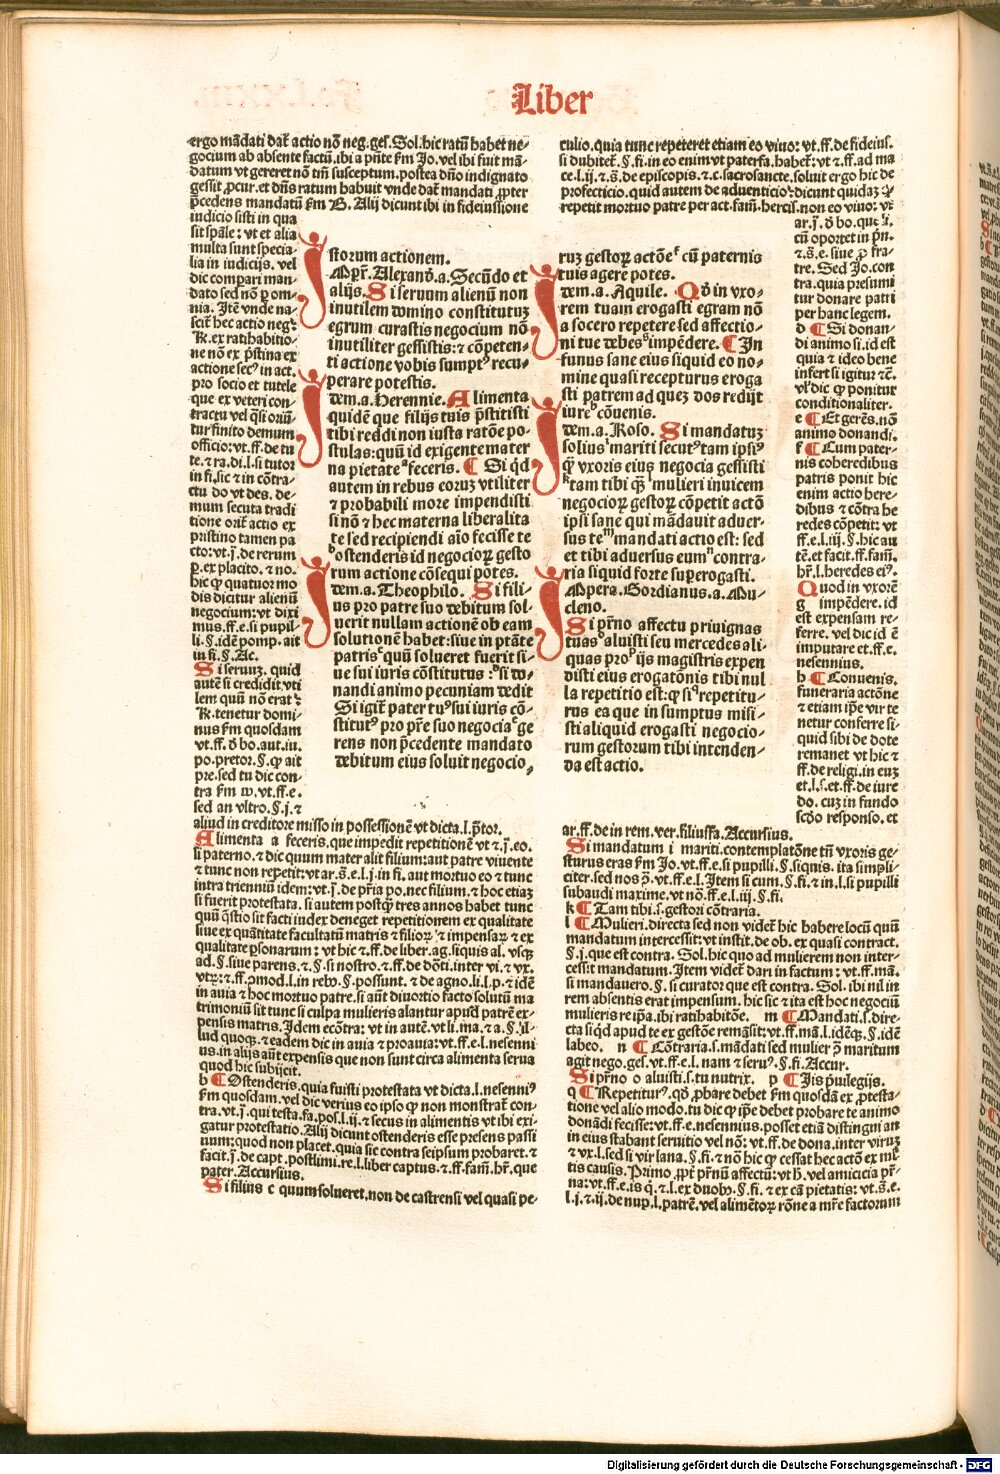 Liber
ergo mādati dat̄ actio nō neg. ges̄. Sol. hic ratū habet ne-
gocium ab absente factū. ibi a p̄nte f̄m Jo. vel ibi fuit mā-
datum vt gereret nō tm̄ susceptum. postea dn̄o indignato
gessit ꝓcur. et dn̄s ratum habuit vnde dat̄ mandati ꝓpter
p̄cedens mandatū f̄m B. Alij dicunt ibi in fideiussione
iudicio sisti in qua
sit spāle: vt et alia
multa sunt specia-
lia in iudicijs. vel
dic compari man-
dato sed nō ꝑ om-
nia. Itē vnde na-
scit̄ hec actio neg
R. ex ratihabitio-
ne nō ex p̄stina ex
actione sec⁹ in act.
pro socio et tutele
que ex veteri con-
tractu vel q̄si oriū-
tur finito demum
officio: vt ff. de tu
te. ⁊ ra. di. l. si tutor
in fi. sic ⁊ in cōtra-
ctu do vt des. de-
mum secuta tradi
tione orit̄ actio ex
pristino tamen pa
cto: vt. j. de rerum
ꝑ. ex placito. ⁊ no.
hic ꝙ quatuor mo
dis dicitur alienū
negocium: vt dixi
mus. ff. e. si pupil-
li. §. idē pomp. ait
in fi. §. Ac.
Si seruuz. quid
autē si credidit vti
lem quū nō erat
R. tenetur domi-
nus f̄m quosdam
vt. ff. ð bo. aut. iu.
po. pretor. §. ꝙ ait
pre. sed tu dic con-
tra f̄m w. vt. ff. e.
sed an vltro. §. j. ⁊
aliud in creditore misso in possessionē vt dicta. l. p̄tor.
Alimenta a feceris. que impedit repetitionē vt ⁊ j. eo.
li paterno. ⁊ dic quum mater alit filium: aut patre viuente
⁊ tunc non repetit: vt ar. s̄. e. l. j. in fi. aut mortuo eo ⁊ tunc
intra triennium idem: vt. j. de p̄ria po. nec filium. ⁊ hoc etiaz
si fuerit protestata. si autem postq̄ tres annos habet tunc
quū q̄stio sit facti iudex deneget repetitionem ex qualitate
siue ex quātitate facultatū matris ⁊ filioꝝ ⁊ impensaꝝ ⁊ ex
qualitate ꝑsonarum: vt hic ⁊. ff. de liber. ag. si quis al. vsq̄
ad. §. siue parens. ⁊. §. si nostro. ⁊. ff. de dōti. inter vi. ⁊ vx.
in auia ⁊ hoc mortuo patre. si aūt diuortio facto solutū ma
trimoniū sit tunc si culpa mulieris alantur apud patrē ex-
pensis matris. Idem ecōtra: vt in autē. vt li. ma. ⁊ a. §. il-
lud quoq̄. ⁊ eadem dic in auia ⁊ proauia: vt. ff. e. l. nesenni
us. in alijs aūt expensis que non sunt circa alimenta serua
quod hic subijcit.
b ¶ Ostenderis. quia fuisti protestata vt dicta. l. nesenni⁹
f̄m quosdam. vel dic verius eo ipso ꝙ non monstrat̄ con-
tra. vt. j. qui testa. fa. pos. l. ij. ⁊ secus in alimentis vt ibi exi-
gatur protestatio. Alij dicunt ostenderis esse presens passi
uum: quod non placet. quia sic contra seipsum probaret. ⁊
facit. j. de capt. postlimi. re. l. liber captus. ⁊. ff. fam̄. hr̄. que
pater. Accursius.
Si filius c quum solueret. non de castrensi vel quasi pe-
istorum actionem.
Mpēr. Alexanð. a. Secūdo et
alijs. Si seruum alienū non
inutilem domino constitutuz
egrum curastis negocium nō
inutiliter gessistis: ⁊ cōpeten-
ti actione vobis sumpt⁹ recu-
perare potestis.
Idem. a. Herennie. Alimenta
quidē que filijs tuis p̄stitisti
tibi reddi non iusta ratōe po-
stulas: quū id exigente mater
na pietate a feceris. ¶ Si q̄d
autem in rebus eoruz vtiliter
⁊ probabili more impendisti
si nō ⁊ hec materna liberalita
te sed recipiendi aīo fecisse te
b ostenderis id negocioꝝ gesto
rum actione cōsequi potes.
Idem. a. Theophilo. Si fili-
us pro patre suo debitum sol-
uerit nullam actionē ob eam
solutionē habet: siue in ptāte
patris c quū solueret fuerit si-
ue sui iuris cōstitutus: d si do-
nandi animo pecuniam dedit
Si igit̄ pater tu⁹ sui iuris cō-
stitut⁹ pro pr̄e suo negocia e ge
rens non p̄cedente mandato
debitum eius soluit negocio,
culio. quia tunc repeteret etiam eo viuo: vt. ff. de fideius.
si dubitet̄. §. fi. in eo enim vt paterfa. habet̄: vt ⁊. ff. ad ma
ce. l. ij. ⁊. s̄. de episcopis. ⁊. c. sacrosancte. soluit ergo hic de
profecticio. quid autem de aduenticio: dicunt quidaz ꝙ
repetit mortuo patre per act. fam̄. hercis̄. non eo viuo: vt
ruz gestoꝝ actōe f cū paternis
tuis agere potes.
Idem. a. Aquile. Qð in vxo-
rem tuam erogasti egram nō
a socero repetere sed affectio-
ni tue debes g impēdere. ¶ In
funus sane eius siquid eo no-
mine quasi recepturus eroga
sti patrem ad quez dos redijt
iure h cōuenis.
Idem. a. Roso. Si mandatuz
solius i mariti secut⁹ tam ipsi⁹
ꝙ̄ vxoris eius negocia gessisti
k tam tibi q̄ l mulieri inuicem
negocioꝝ gestoꝝ cōpetit actō
ipsi sane qui mādauit aduer-
sus te m mandati actio est: sed
et tibi aduersus eum n contra-
ria siquid forte suꝑerogasti.
Mpera. Gordianus. a. Mu-
cieno.
Si p̄rno affectu priuignas
tuas o aluisti seu mercedes ali-
quas pro p ijs magistris expen
disti eius erogatōnis tibi nul
la repetitio est: ꝙ si q repetitu-
rus ea que in sumptus misi-
sti aliquid erogasti negocio-
rum gestorum tibi intenden-
da est actio.
cū oportet in p̄n.
⁊. s̄. e. siue ꝓ fra-
tre. Sed Jo. con
tra. quia presumi
tur donare patri
per hanc legem.
d ¶ Si donan-
di animo si. id est
quia ⁊ ideo bene
infert si igitur ⁊c̄.
vl̄ dic ꝙ ponitur
conditionaliter.
e ¶ Et gerēs. nō
animo donandi.
f ¶ Cum pater-
nis coheredibus
patris ponit hic
enim actio here-
dibus ⁊ cōtra he
redes cōpetit: vt
ff. e. l. iij. §. hic au
tē. et facit. ff. fam̄.
hr̄. l. heredes ei⁹.
Quod in vxorē
g impēdere. id
est expensam re-
ferre. vel dic id ē
imputare et. ff. e.
nesennius.
h ¶ Conuenis.
funeraria actōne
⁊ etiam ip̄e vir te
netur conferre si-
quid sibi de dote
remanet vt hic ⁊
ff. de religi. in eum
et. l. s. et. ff. de iure
do. cuz in fundo
scðo responso. et
ar. ff. de in rem. ver. filiusfa. Accursius.
Si mandatum i mariti. contemplatōne tn̄ vxoris ge-
sturus eras f̄m Jo. vt. ff. e. si pupilli. §. siquis. ita simpli-
citer. sed nos ꝯ. vt. ff. e. l. Item si cum. §. fi. ⁊ in. l. si pupilli
subaudi maxime. vt nō. ff. e. l. iij. §. fi.
k ¶ Tam tibi. s̄. gestori cōtraria.
l ¶ Mulieri. directa sed non videt̄ hic habere locū quū
mandatum intercessit: vt instit. de ob. ex quasi contract.
§. j. que est contra. Sol. hic quo ad mulierem non inter-
cessit mandatum. Item videt̄ dari in factum: vt. ff. mā.
si mandauero. §. si curator que est contra. Sol. ibi nil in
rem absentis erat impensum. hic sic ⁊ ita est hoc negociū
mulieris re ip̄a. ibi ratihabitōe. m ¶ Mandati. s̄. dire-
cta si q̄d apud te ex gestōe remāsit: vt. ff. mā. l. idēq̄. §. idē
labeo. n ¶ Cōtraria. s̄. mādati sed mulier ꝯ maritum
agit nego. ges̄. vt. ff. e. l. nam ⁊ seru⁹. §. fi. Accur.
Si p̄rno o aluisti. s̄. tu nutrix. p ¶ Ijs p̄uilegijs.
q ¶ Repetitur⁹. qð ꝓbare debet f̄m quosdā ex ꝓtesta-
tione vel alio modo. tu dic ꝙ ip̄e debet probare te animo
donādi fecisse: vt. ff. e. nesennius. posset etiā distingui an
in eius stabant seruitio vel nō: vt. ff. de dona. inter viruz
⁊ vx. l. sed si vir lana. §. fi. ⁊ nō hic ꝙ cessat hec actō ex ml̄-
tis causis. Primo ꝓpt̄ p̄rnū affectū: vt h̄. vel amicicia pr̄-
na: vt. ff. e. is q̄. ⁊. l. ex duob⁹. §. fi. ⁊ ex cā pietatis: vt. s̄. e.
l. j. ⁊. ij. de nup. l. patrē. vel alimētoꝝ rōne a mr̄e factorum
Digitalisierung gefördert durch die Deutsche Forschungsgemeinschaft - DFG